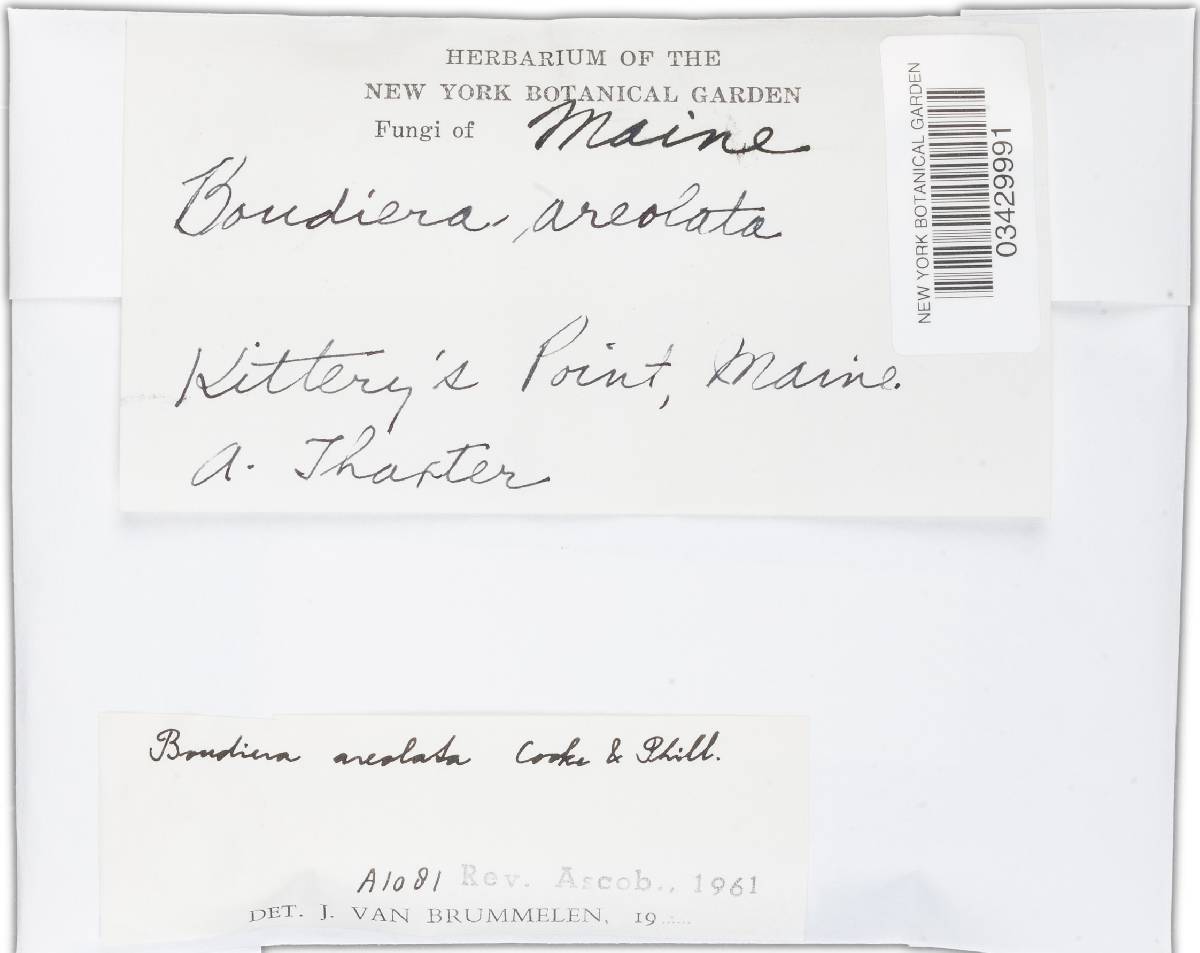 HERBARIUM OF THE
NEW YORK BOTANICAL GARDEN
Fungi of Maine
Boudiera areolata
Kittery's Point, Maine.
A. Thaxter
NEW YORK BOTANICAL GARDEN
03429991
Boudiera areolata Cooke & Phill.
A1081 Rev. Ascob., 1961
DET. J. VAN BRUMMELEN, 19......